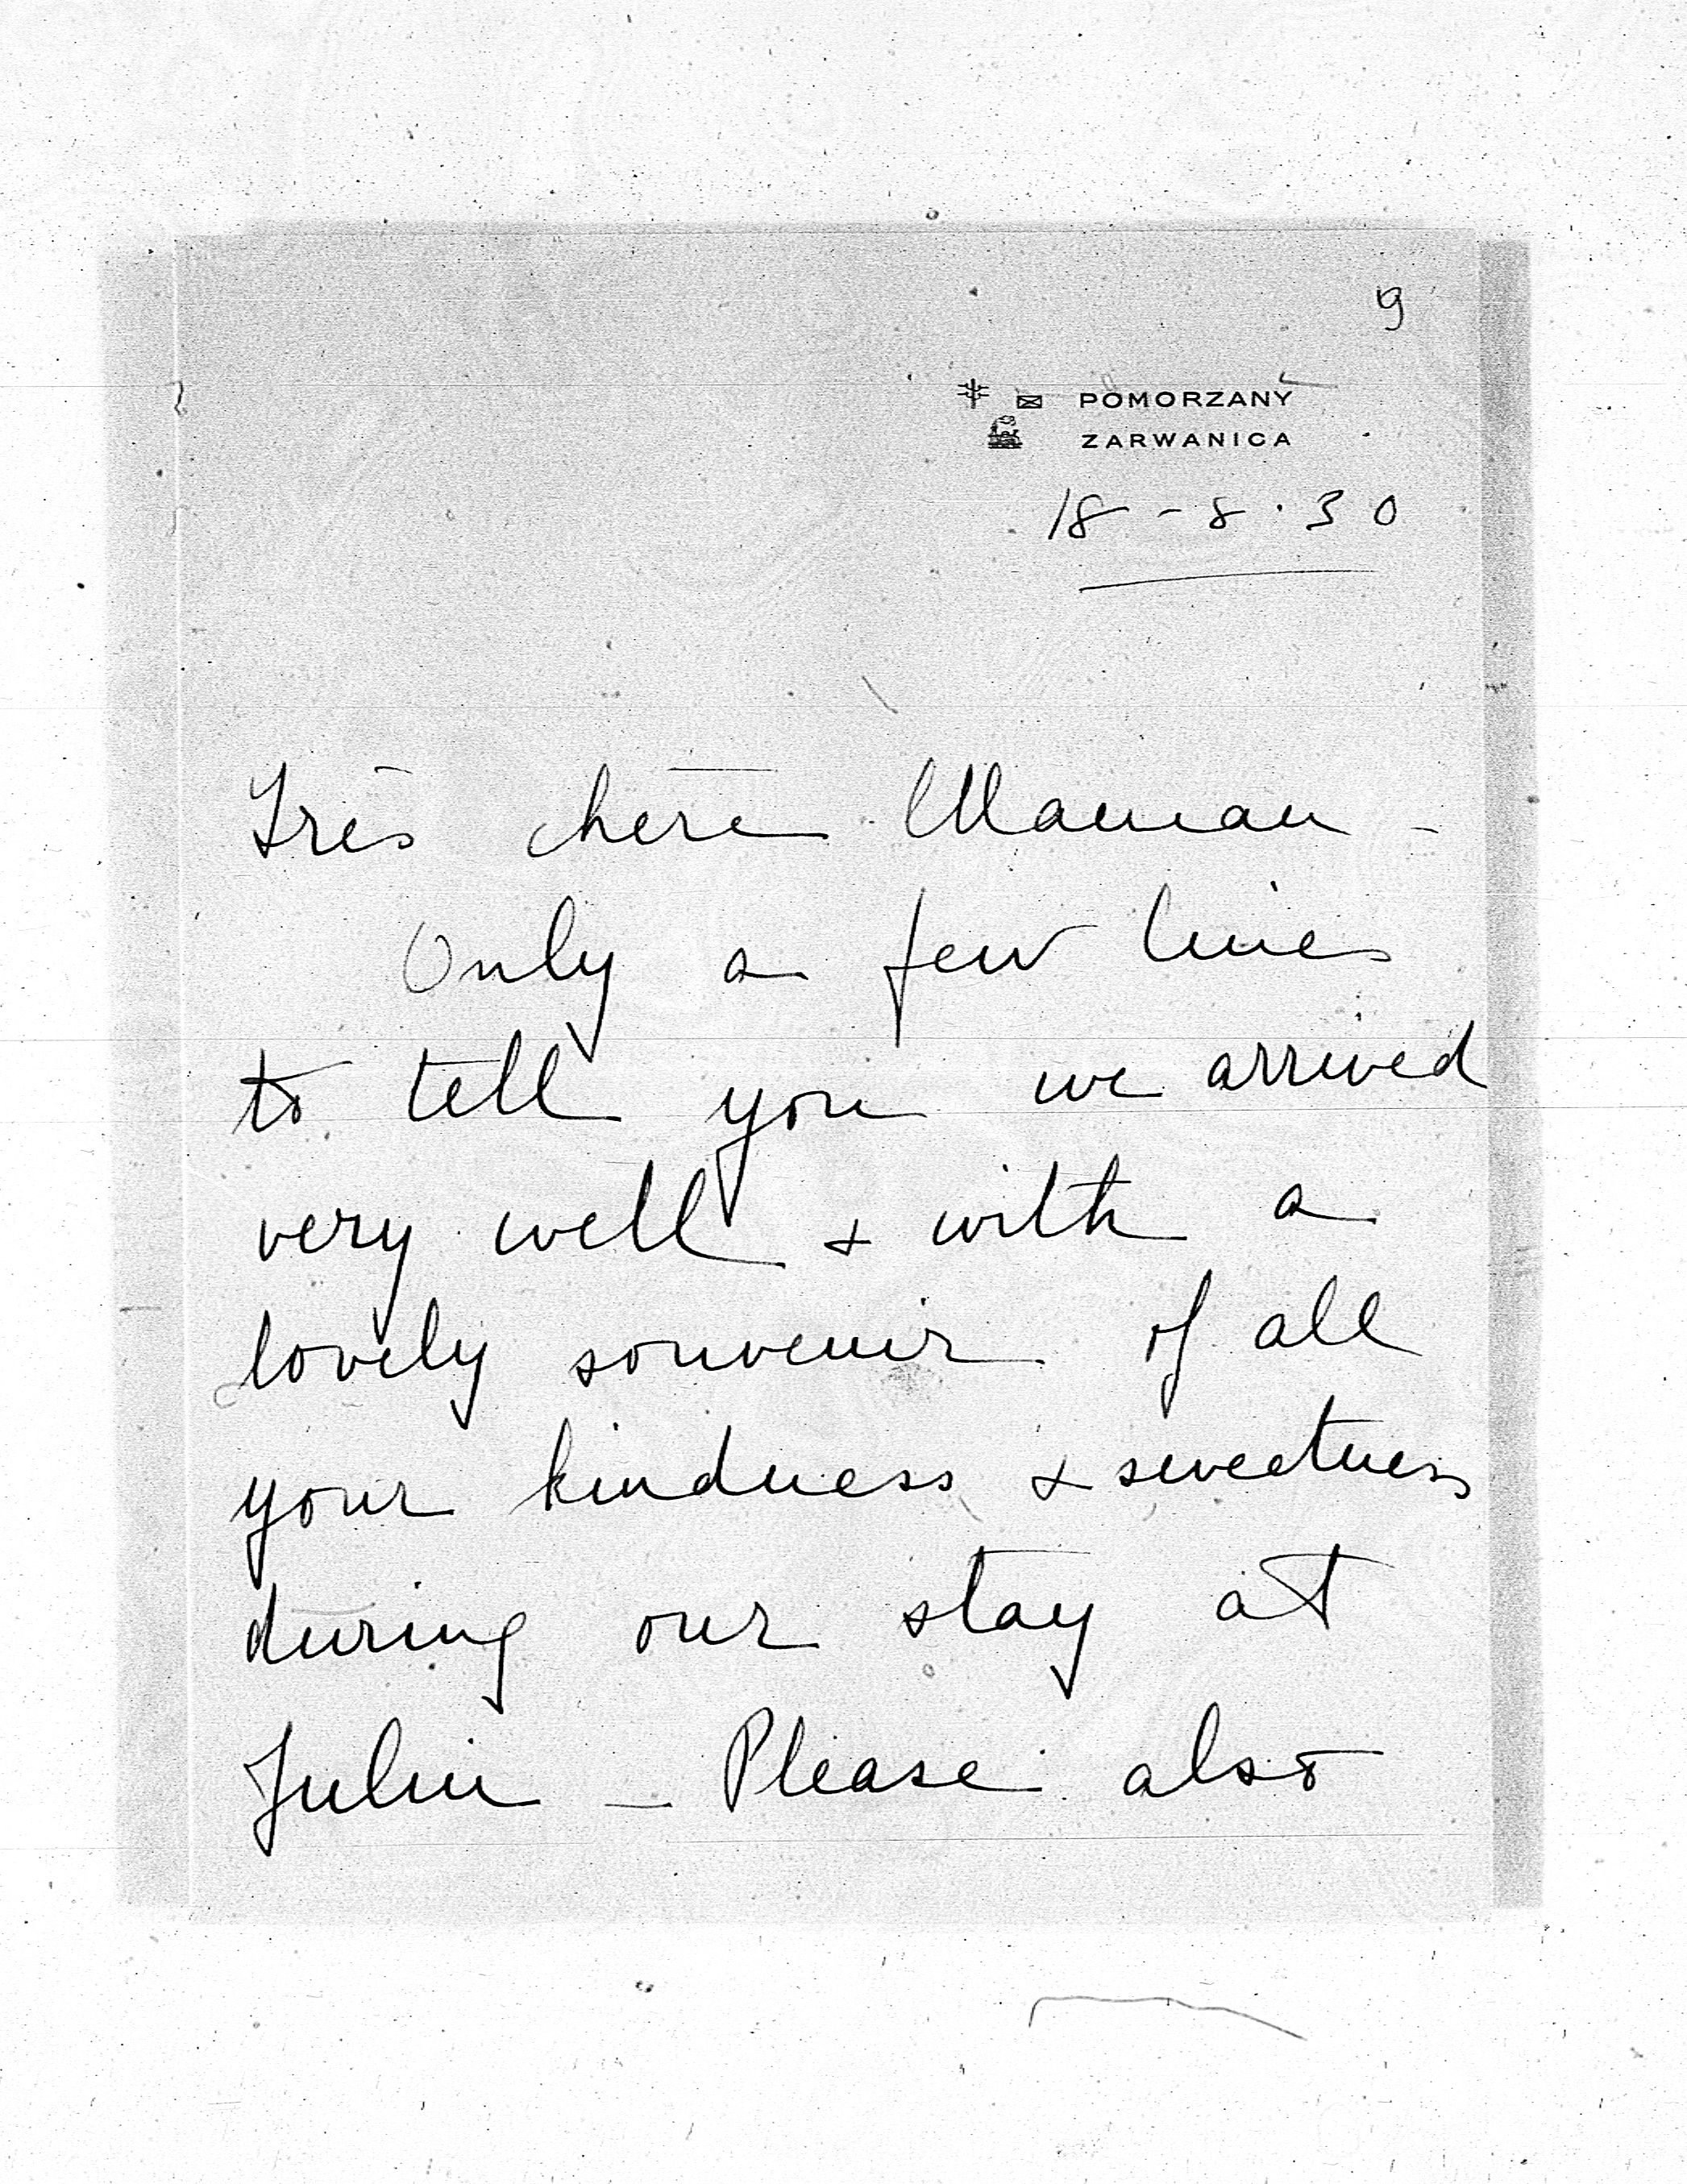 9
POMORZANY
ZARWANICA
18 - 8 . 30
Très chère Maman -
Only a few lines
to tell you we arrived
very well & with a
lovely souvenir of all
your kindness & sweetness
during our stay at
Julin — Please also